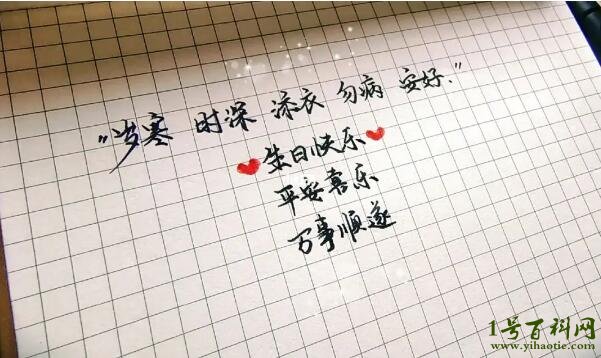 “岁寒 时深 添衣 勿病 安好.”
生日快乐
平安喜乐
万事顺遂
1号百科网
www.yihaotie.com